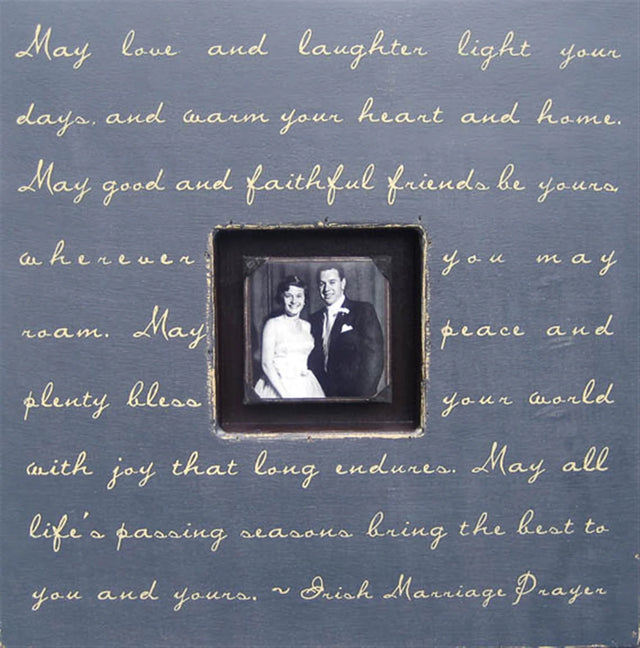 May love and laughter light your
days, and warm your heart and home.
May good and faithful friends be yours,
wherever you may
roam. May peace and
plenty bless your world
with joy that long endures. May all
life's passing seasons bring the best to
you and yours. ~ Irish Marriage Prayer